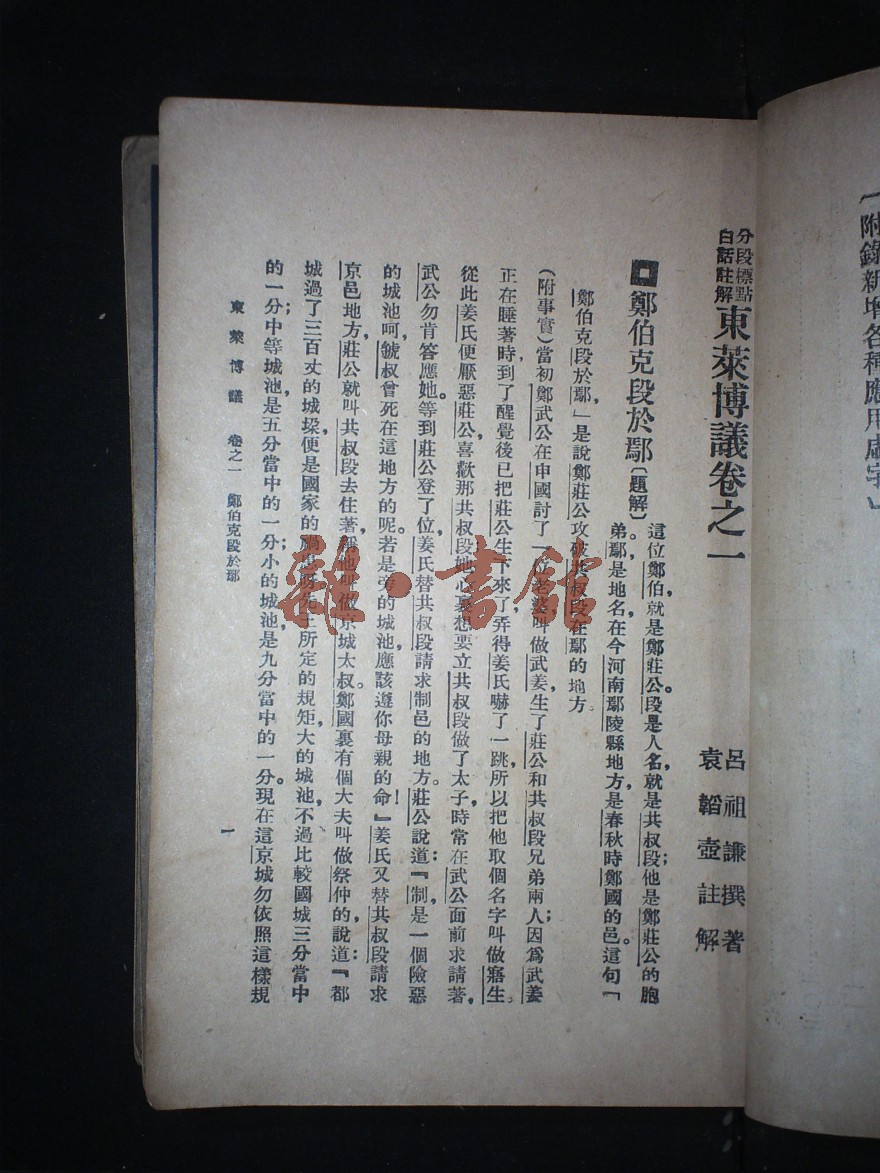 附錄新增各種應用虛字
分段標點
白話註解
東萊博議卷之一
呂祖謙撰著
袁韜壺註解
鄭伯克段於鄢〔題解〕
這位鄭伯,就是鄭莊公。段是人名,就是共叔段;他是鄭莊公的胞
弟。鄢是地名在今河南鄢陵縣地方,是春秋時鄭國的邑。這句「
鄭伯克段於鄢,」是說鄭莊公攻破共叔段在鄢的地方。
(附事實)當初鄭武公在申國討了一位老婆,叫做武姜,生了莊公和共叔段兄弟兩人;因爲武姜
正在睡著時,到了醒覺後已把莊公生下來了,弄得姜氏嚇了一跳,所以把他取個名字叫做寤生。
從此姜氏便厭惡莊公,喜歡那共叔段,她心裏想要立共叔段做了太子,時常在武公面前求請著,
武公勿肯答應她。等到莊公登了位,姜氏替共叔段請求制邑的地方。莊公說道:『制,是一個險惡
的城池呵,虢叔曾死在這地方的呢。若是旁的城池,應該遵你母親的命!』姜氏又替共叔段請求
京邑地方,莊公就叫共叔段去住著,稱他叫做京城太叔。鄭國裏有個大夫叫做祭仲的,說道:『都
城過了三百丈的城垜,便是國家的禍患呀。先王所定的規矩,大的城池,不過比較國城三分當中
的一分;中等城池,是五分當中的一分;小的城池,是九分當中的一分。現在這京城勿依照這樣規
東萊博議 卷之一 鄭伯克段於鄢
一
雜·書館